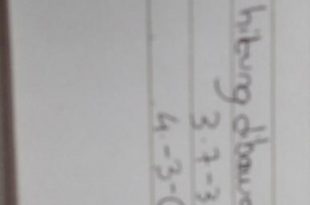 hitung dbawa
3.7-3
4-3-(